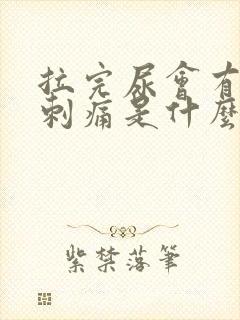 拉完尿會有
刺痛是什麼
紫禁落筆